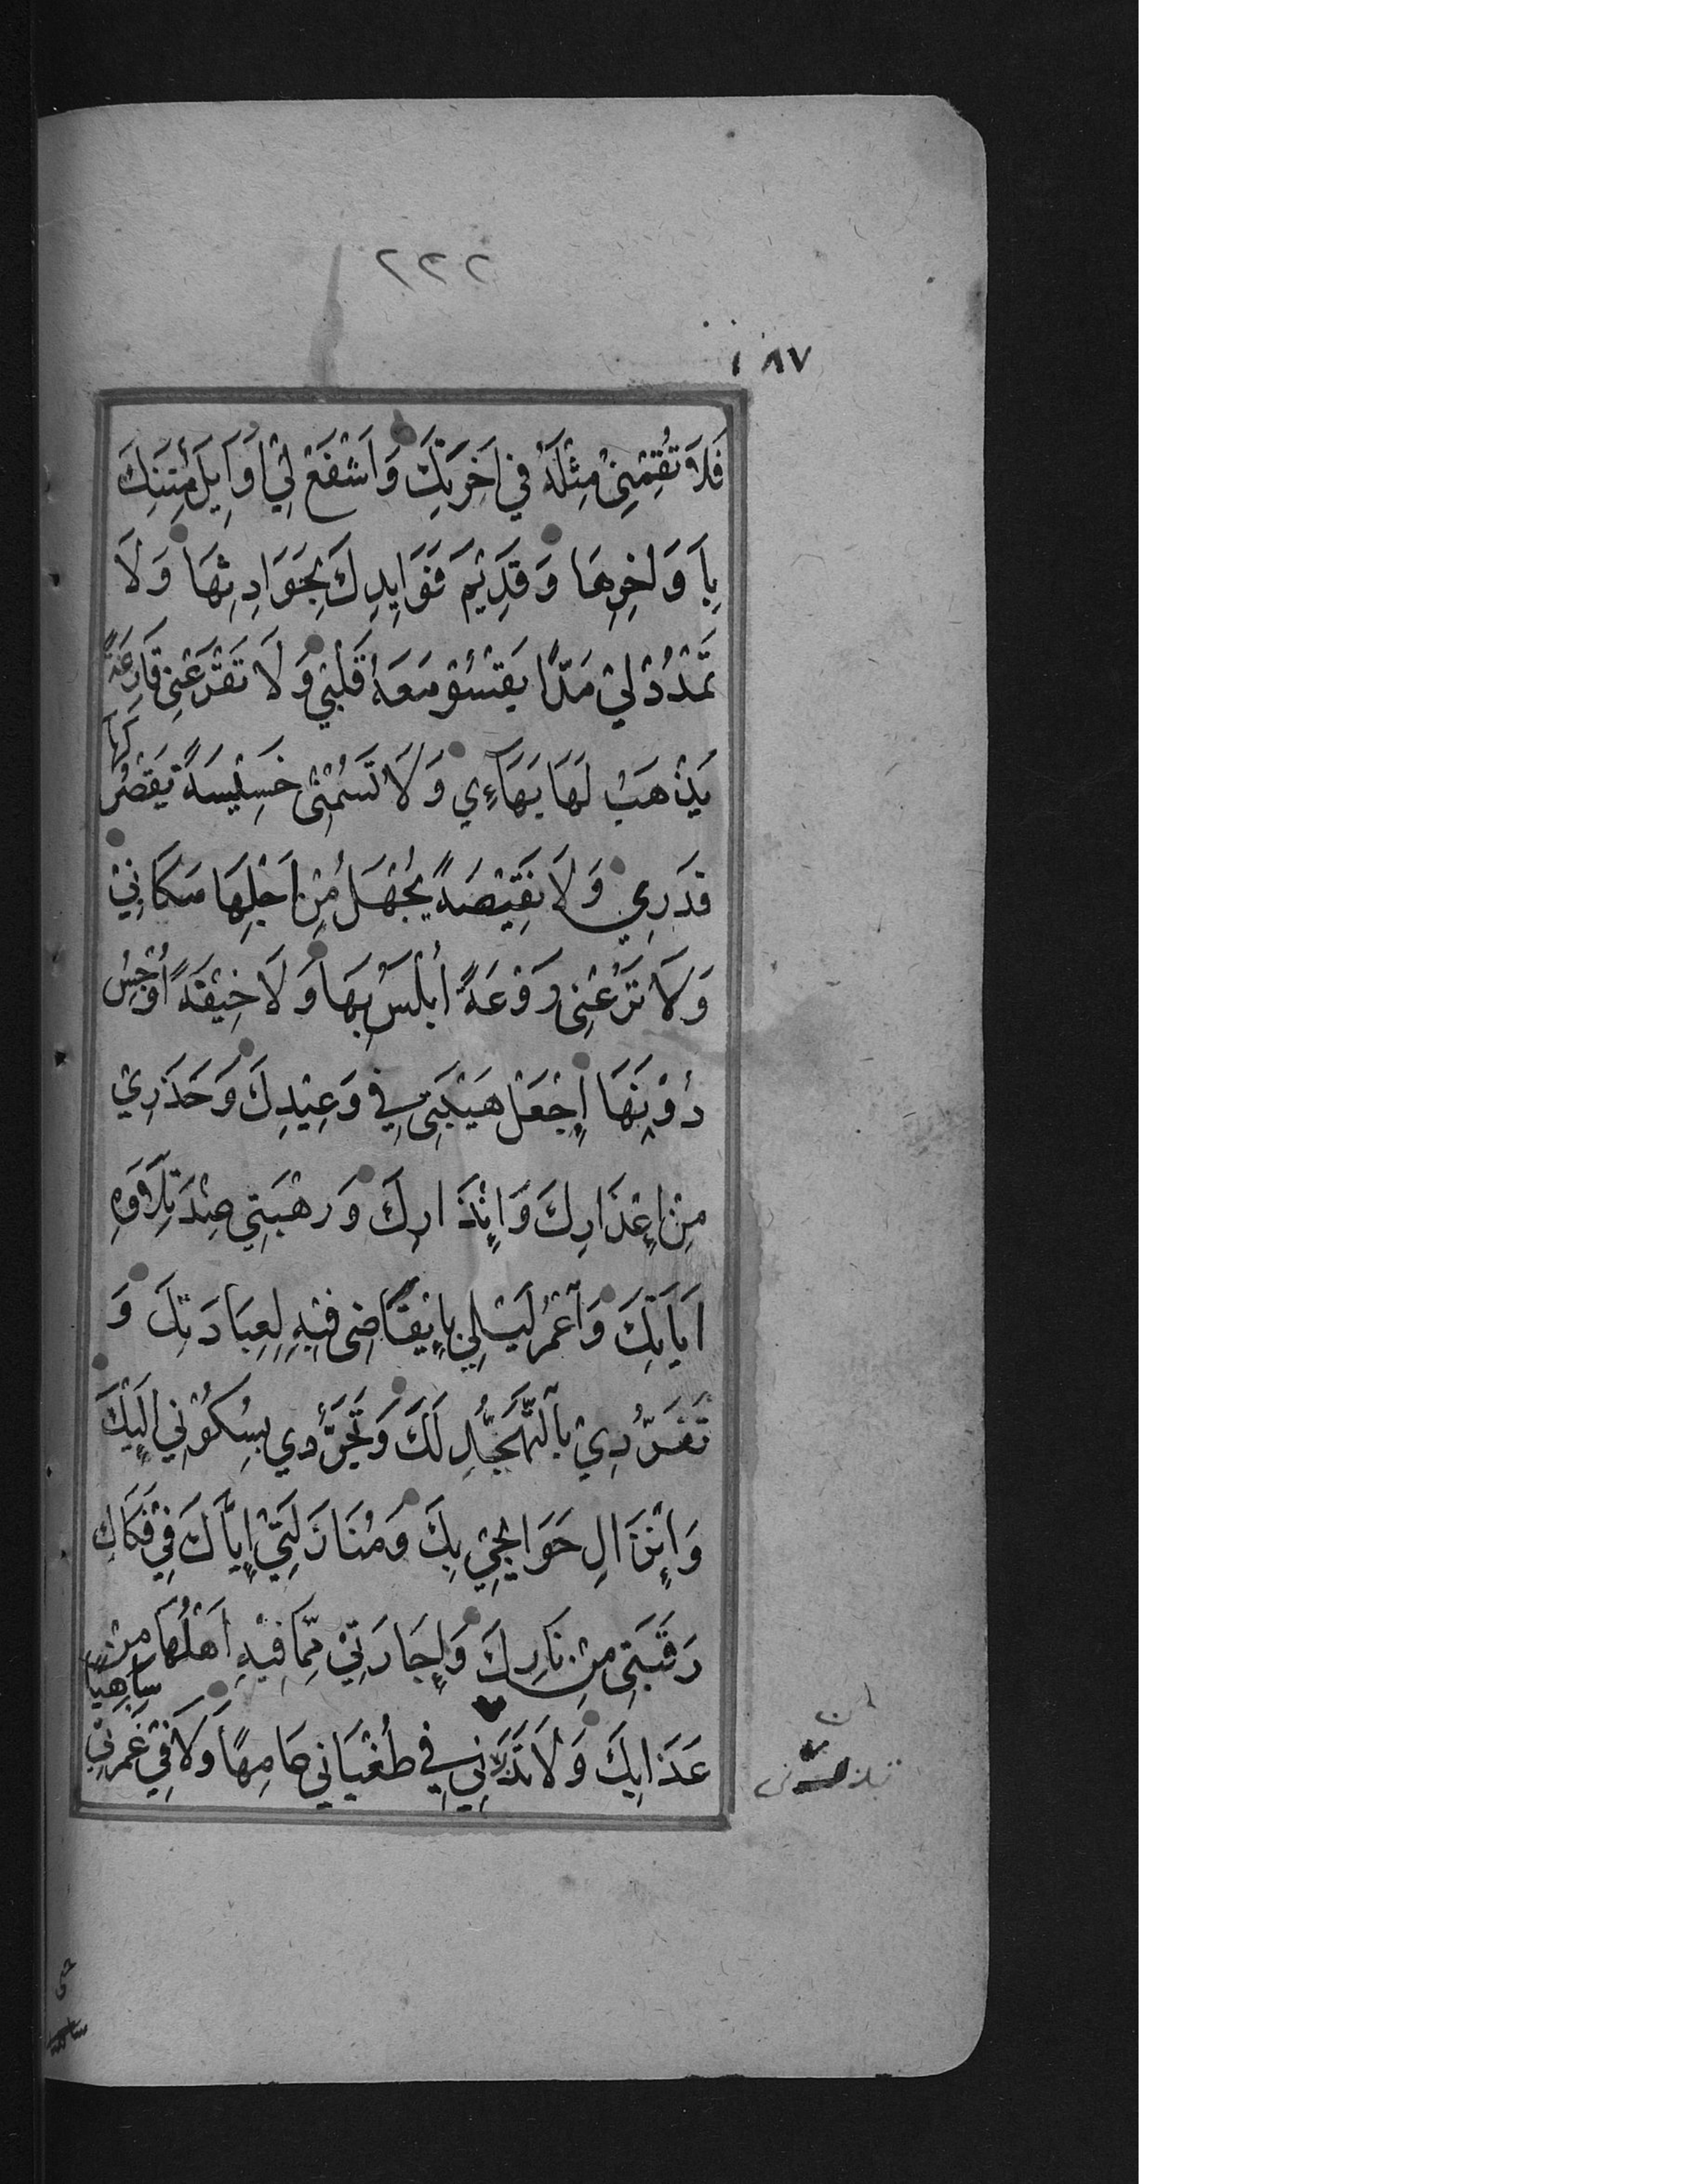 ٢٢٢
١٨٧
فَلَا تُقِمْنِيْ مِثْلَهُ فِي اٰخِرَتِكَ وَاشْفَعْ لِيْ اَوَايِلَ مِنَنِكَ
بِاَوَاخِرِهَا وَقَدِيْمَ فَوَايِدِكَ بِحَوَادِثِهَا وَلَا
تَمْدُدْ لِيْ مَدًّا يَقْسُوْ مَعَهُ قَلْبِيْ وَلَا تَقْرَعْنِيْ قَارِعَةً
يَذْهَبُ لَهَا بَهَاءِي وَلَا تَسُمْنِيْ خَسِيْسَةً يَصْغُرُ لَهَا
قَدْرِي وَلَا نَقِيْصَةً يُجْهَلُ مِنْ اَجْلِهَا مَكَانِيْ
وَلَا تَرُعْنِيْ رَوْعَةً أُبْلِسُ بِهَا وَلَا خِيْفَةً اُوْجِسُ
دُوْنَهَا اِجْعَلْ هَيْبَتِيْ فِي وَعِيْدِكَ وَحَذَرِيْ
مِنْ اِعْذَارِكَ وَاِنْذَارِكَ وَرَهْبَتِي عِنْدَ تِلَاوَةِ
اٰيَاتِكَ وَاعْمُرْ لَيْلِي بِاِيْقَاضِي فِيْهِ لِعِبَادَتِكَ وَ
تَفَرُّدِيْ بِالتَّهَجُّدِ لَكَ وَتَجَرُّدِي بِسُكُوْنِي اِلَيْكَ
وَاِنْزَالِ حَوَايِجِيْ بِكَ وَمُنَازَلَتِيْ اِيَّاكَ فِيْ فَكَاكِ
رَقَبَتِي مِنْ نَارِكَ وَاِجَارَتِيْ مِمَّا فِيْهِ اَهْلُهَا مِنْ
عَذَابِكَ وَلَا تَذَرْنِي فِي طُغْيَانِي عَامِهًا وَلَا فِيْ غَمْرَتِيْ سَاهِيًا